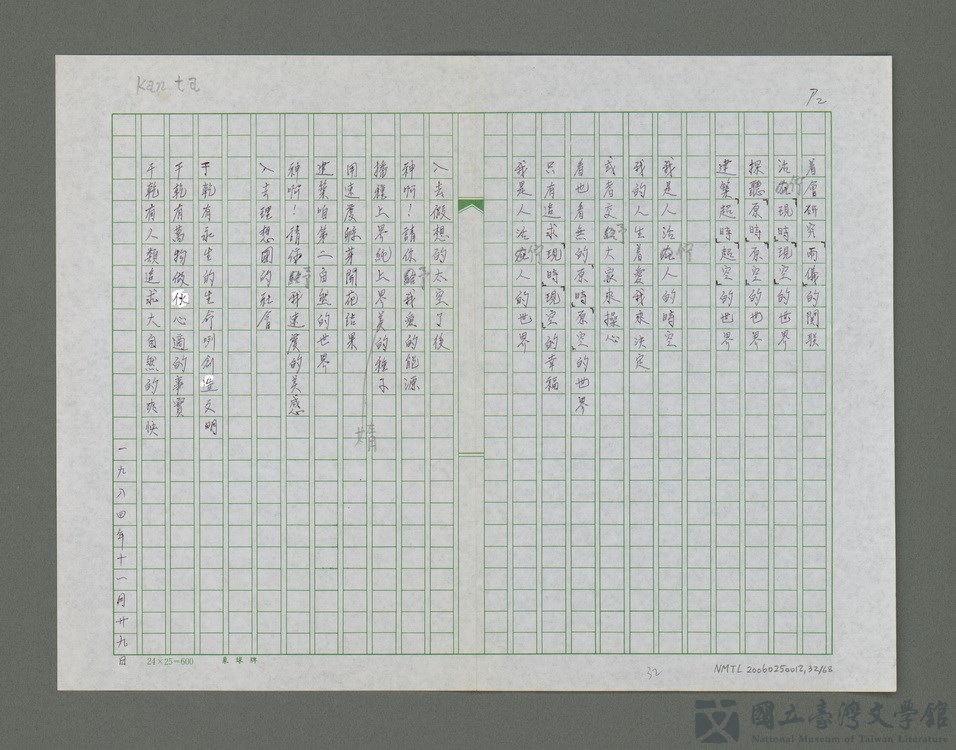 Kan ta
P2
着會研究兩儀的関联
活佇現時現空的世界
探聽原時原空的世界
建築超時超空的世界
我是人活佇人的時空
我的人生着愛我來決定
或者交予大家來操心
看也看無的原時原空的世界
只有追求現時現空的幸福
我是人活佇人的世界
入去假想的太空了後
神啊！請你予我無的能源
播種上界純上界美的種子
用速度發芽開花結果
建築咱第二自然的世界
神啊！請你予我速度的美感
入去理想國的社會
才有永生的生命咧創造文明
才有萬物做伙心適的事實
才有人類追求大自然的爽快
一九八四年十一月廿九日
婧
24×25=600
32
NMTL20060250012,32/68
國立臺灣文學館
National Museum of Taiwan Literature